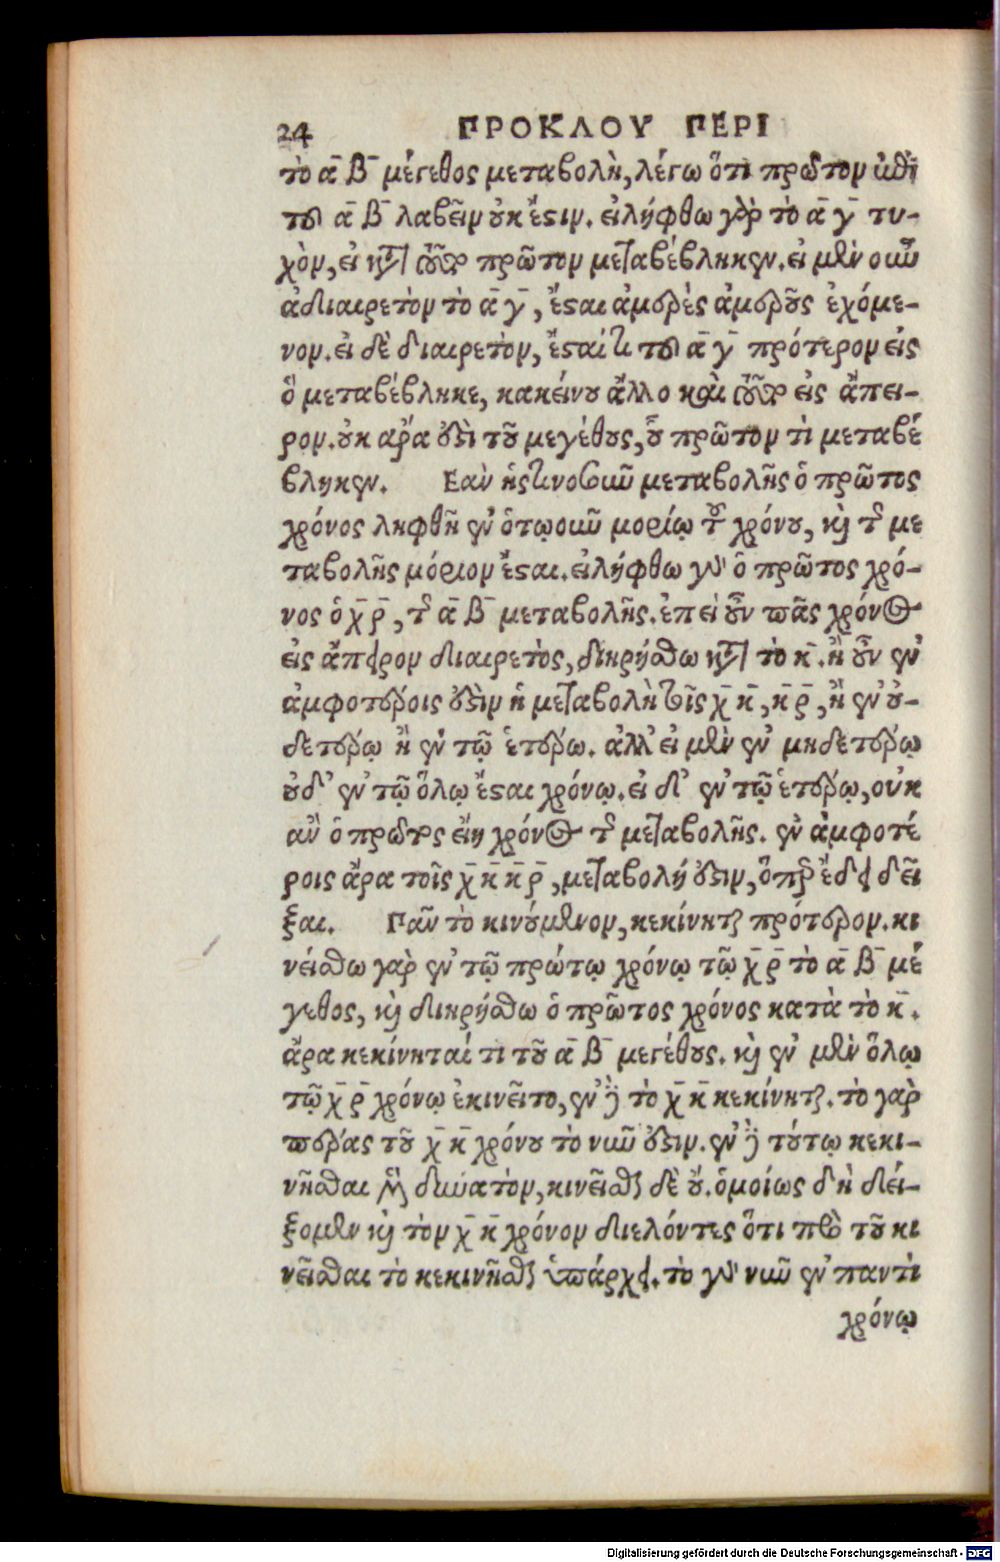 24 ΠΡΟΚΛΟΥ ΠΕΡΙ
τὸ α̅ β̅ μέγεθος μεταβολὴ, λέγω ὅτι πρῶτον οὐθὲν
τοῦ α̅ β̅ λαβεῖν οὐκ ἔστιν. εἰλήφθω γὰρ τὸ α̅ γ̅ τυ-
χὸν, εἰ κατὰ τοῦτο πρῶτον μεταβέβληκεν. εἰ μὲν οὖν
ἀδιαιρετὸν τὸ α̅ γ̅, ἔσται ἀμερὲς ἀμεροῦς ἐχόμε-
νον. εἰ δὲ διαιρετὸν, ἔσται τι τοῦ α̅ γ̅ πρότερον εἰς
ὃ μεταβέβληκε, κακείνου ἄλλο καὶ τοῦτο εἰς ἄπει-
ρον. οὐκ αῤα οὐδὲν τοῦ μεγέθους, οὗ πρῶτον τὶ μεταβέ
βληκεν. Εαν ἡστινοσοῦν μεταβολῆς ὁ πρῶτος
χρόνος ληφθῆ ἐν ὁτῳοῦν μορίῳ τοῦ χρόνου, καὶ τῆς με
ταβολῆς μόριον ἔσται. εἰλήφθω γὰρ ὁ πρῶτος χρό-
νος ὁ χ̅ ρ̅, τῆς α̅ β̅ μεταβολῆς. ἐπεὶ οὖν πᾶς χρόνος
εἰς ἄπειρον διαιρετὸς, διηρήσθω κατὰ τὸ κ̅. ἢ οὖν ἐν
ἀμφοτέροις ἐστὶν ἡ μεταβολὴ τοῖς χ̅ κ̅, κ̅ ρ̅, ἢ ἐν οὐ-
δετέρῳ ἢ ἐν τῷ ἑτέρω. ἀλλ' εἰ μὲν ἐν μηδετέρῳ
οὐδ' ἐν τῷ ὅλῳ ἔσται χρόνῳ. εἰ δ' ἐν τῷ ἑτέρῳ, οὐκ
αν ὁ πρῶτος είη χρόνος τῆς μεταβολῆς. ἐν ἀμφοτέ
ροις ἄρα τοῖς χ̅ κ̅ κ̅ ρ̅, μεταβολή ἐστιν, ὅπερ ἔδει δεῖ
ξαι. Παν τὸ κινούμενον, κεκίνηται πρότερον. κι
νείσθω γαρ ἐν τῷ πρώτῳ χρόνῳ τῷ χ̅ ρ̅ τὸ α̅ β̅ μέ
γεθος, καὶ διηρήσθω ὁ πρῶτος χρόνος κατὰ τὸ κ̅.
ἄρα κεκίνηταί τι τοῦ α̅ β̅ μεγέθους. καὶ ἐν μὲν ὅλῳ
τῷ χ̅ ρ̅ χρόνῳ ἐκινεῖτο, ἐν δὲ τὸ χ̅ κ̅ κεκίνηται. τὸ γαρ
πέρας τοῦ χ̅ κ̅ χρόνου τὸ νῦν ἐστιν. ἐν δὲ τούτῳ κεκι-
νῆσθαι μὲν δυνατὸν, κινεῖσθαι δὲ οὔ. ὁμοίως δὴ δεί-
ξομεν καὶ τὸν χ̅ κ̅ χρόνον διελόντες ὅτι πρὸ τοῦ κι
νεῖσθαι τὸ κεκινῆσθαι ὑπάρχει. τὸ γὰρ νῦν ἐν παντὶ
χρόνῳ
Digitalisierung gefördert durch die Deutsche Forschungsgemeinschaft - DFG